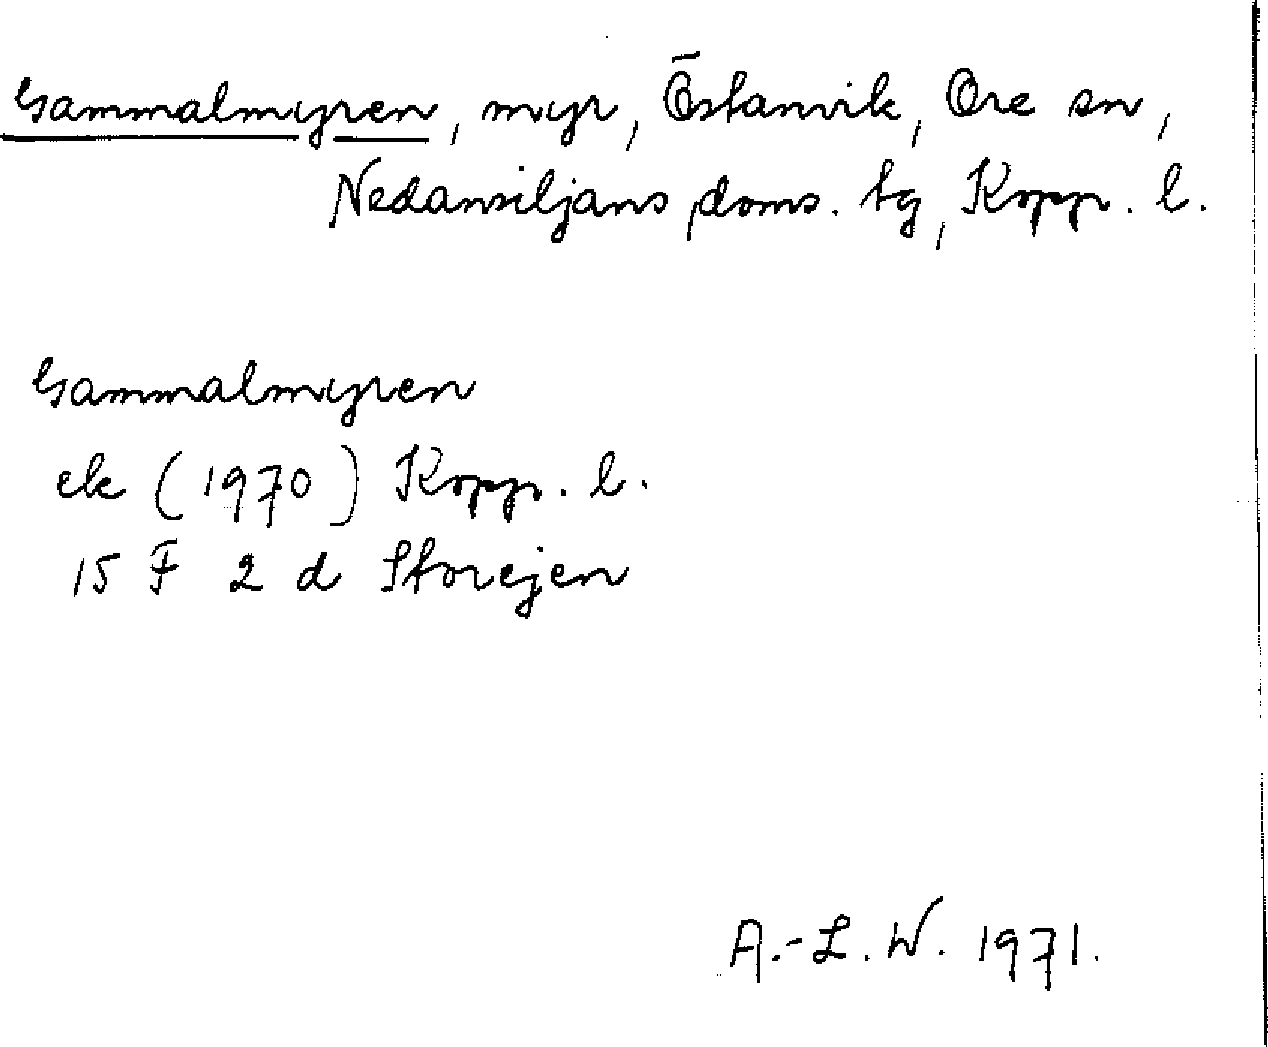 Gammalmyren, myr, Östanvik, Ore sn,
Nedansiljans doms. tg, Kopp. l.
Gammalmyren
ek (1970) Kopp. l.
15 F 2 d Storejen
A.-L. W. 1971.